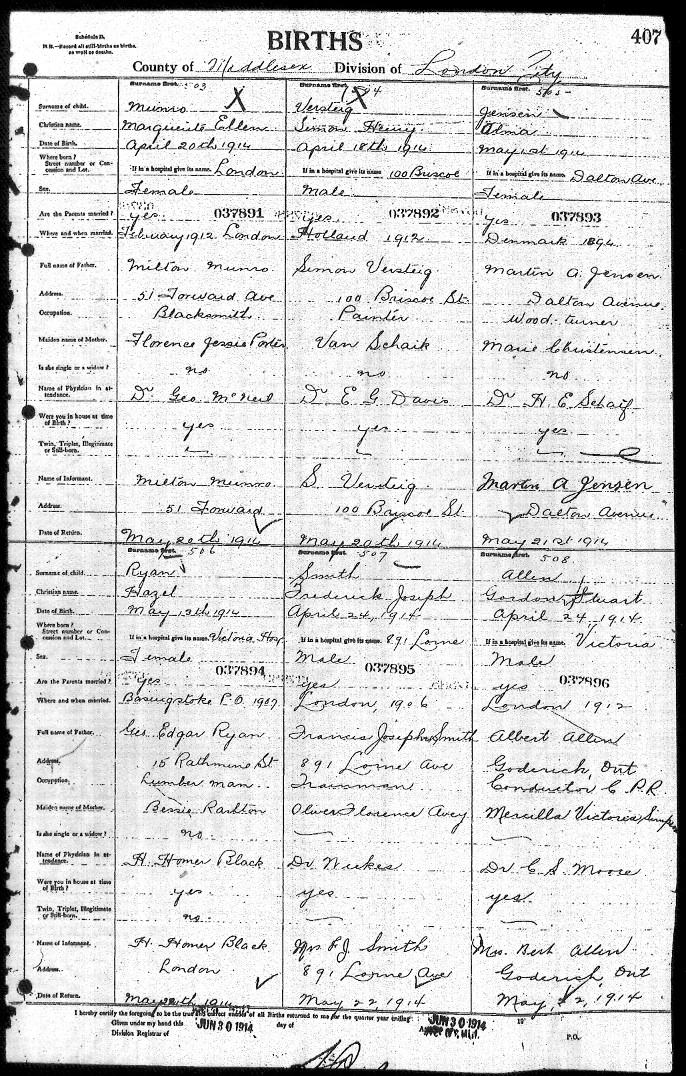 Schedule B.
N.B.—Record all still-births as births,
as well as deaths.
BIRTHS
407
County of Middlesex Division of London City
Surname first. 503
Surname first. 504
Surname first. 505
Surname of child. Munro X Versteig X Jensen
Christian name. Marguerite Ellen Simon Henry Alma
Date of Birth. April 20th 1914 April 18th 1914 May 1st 1914
Where born?
Street number or Con-
cession and Lot. If in a hospital give its name. London If in a hospital give its name 100 Briscoe If in a hospital give its name. Dalton Ave.
Sex. Female Male Female
Are the Parents married? yes 037891 yes 037892 yes 037893
Where and when married. February 1912 London Holland 1912 Denmark 1894
Full name of Father. Milton Munro Simon Versteig Martin A. Jensen
Address. 51 Forward Ave 100 Briscoe St. Dalton Avenue
Occupation. Blacksmith Painter Wood-turner
Maiden name of Mother. Florence Jessie Porter Van Schaik Marie Christensen
Is she single or a widow? no no no
Name of Physician in at-
tendance. Dr Geo McNeil Dr E G Davis Dr H. E Schaif
Were you in house at time
of Birth? yes yes yes
Twin, Triplet, Illegitimate
or Still-born.
Name of Informant. Milton Munro S. Versteig Martin A Jensen
Address. 51 Forward 100 Briscoe St Dalton Avenue
Date of Return. May 20th 1914 May 20th 1914 May 21st 1914
Surname first. 506
Surname first. 507
Surname first. 508
Surname of child. Ryan Smith Allen
Christian name. Hazel Frederick Joseph Gordon Stuart
Date of Birth. May 12th 1914 April 24, 1914 April 24, 1914
Where born?
Street number or Con-
cession and Lot. If in a hospital give its name. Victoria Hosp If in a hospital give its name. 891 Lorne If in a hospital give its name. Victoria
Sex. Female Male Male
Are the Parents married? Yes 037894 yes 037895 yes 037896
Where and when married. Basingstoke P.O. 1907 London, 1906 London 1912
Full name of Father. Geo. Edgar Ryan Francis Joseph Smith Albert Allen
Address. 15 Rathmine St 891 Lorne Ave Goderich, Ont
Occupation. Lumber man Trainman Conductor C.P.R.
Maiden name of Mother. Bessie Oliver Florence Avey Mercilla Victoria Simpson
Is she single or a widow? no
Name of Physician in at-
tendance. H. Homer Black Dr. Weekes Dr. C. S. Moore
Were you in house at time
of Birth? yes yes yes.
Twin, Triplet, Illegitimate
or Still-born. no
Name of Informant. H. Homer Black Mrs F. J. Smith Mrs. Bert Allen
Address. London 891 Lorne Ave Goderich, Ont
Date of Return. 1914 May 22, 1914 May, 22, 1914
I hereby certify the foregoing to be the true and correct entries of all Births returned to me for the quarter year ending JUN 30 1914 19
Given under my hand this JUN 30 1914 day of
Division Registrar of P.O.